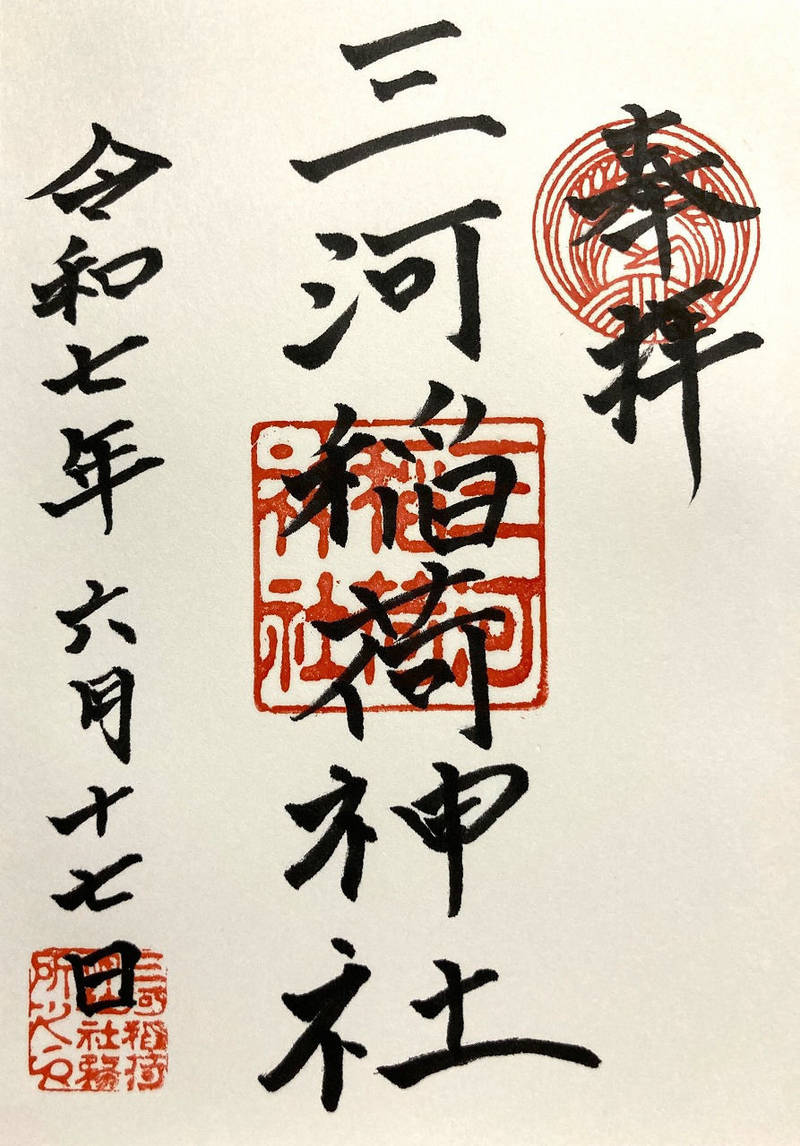 奉拝
三河稲荷神社
三河
稲荷
神社
令和七年 六月十七日
三河稲荷
神社社務
所之印